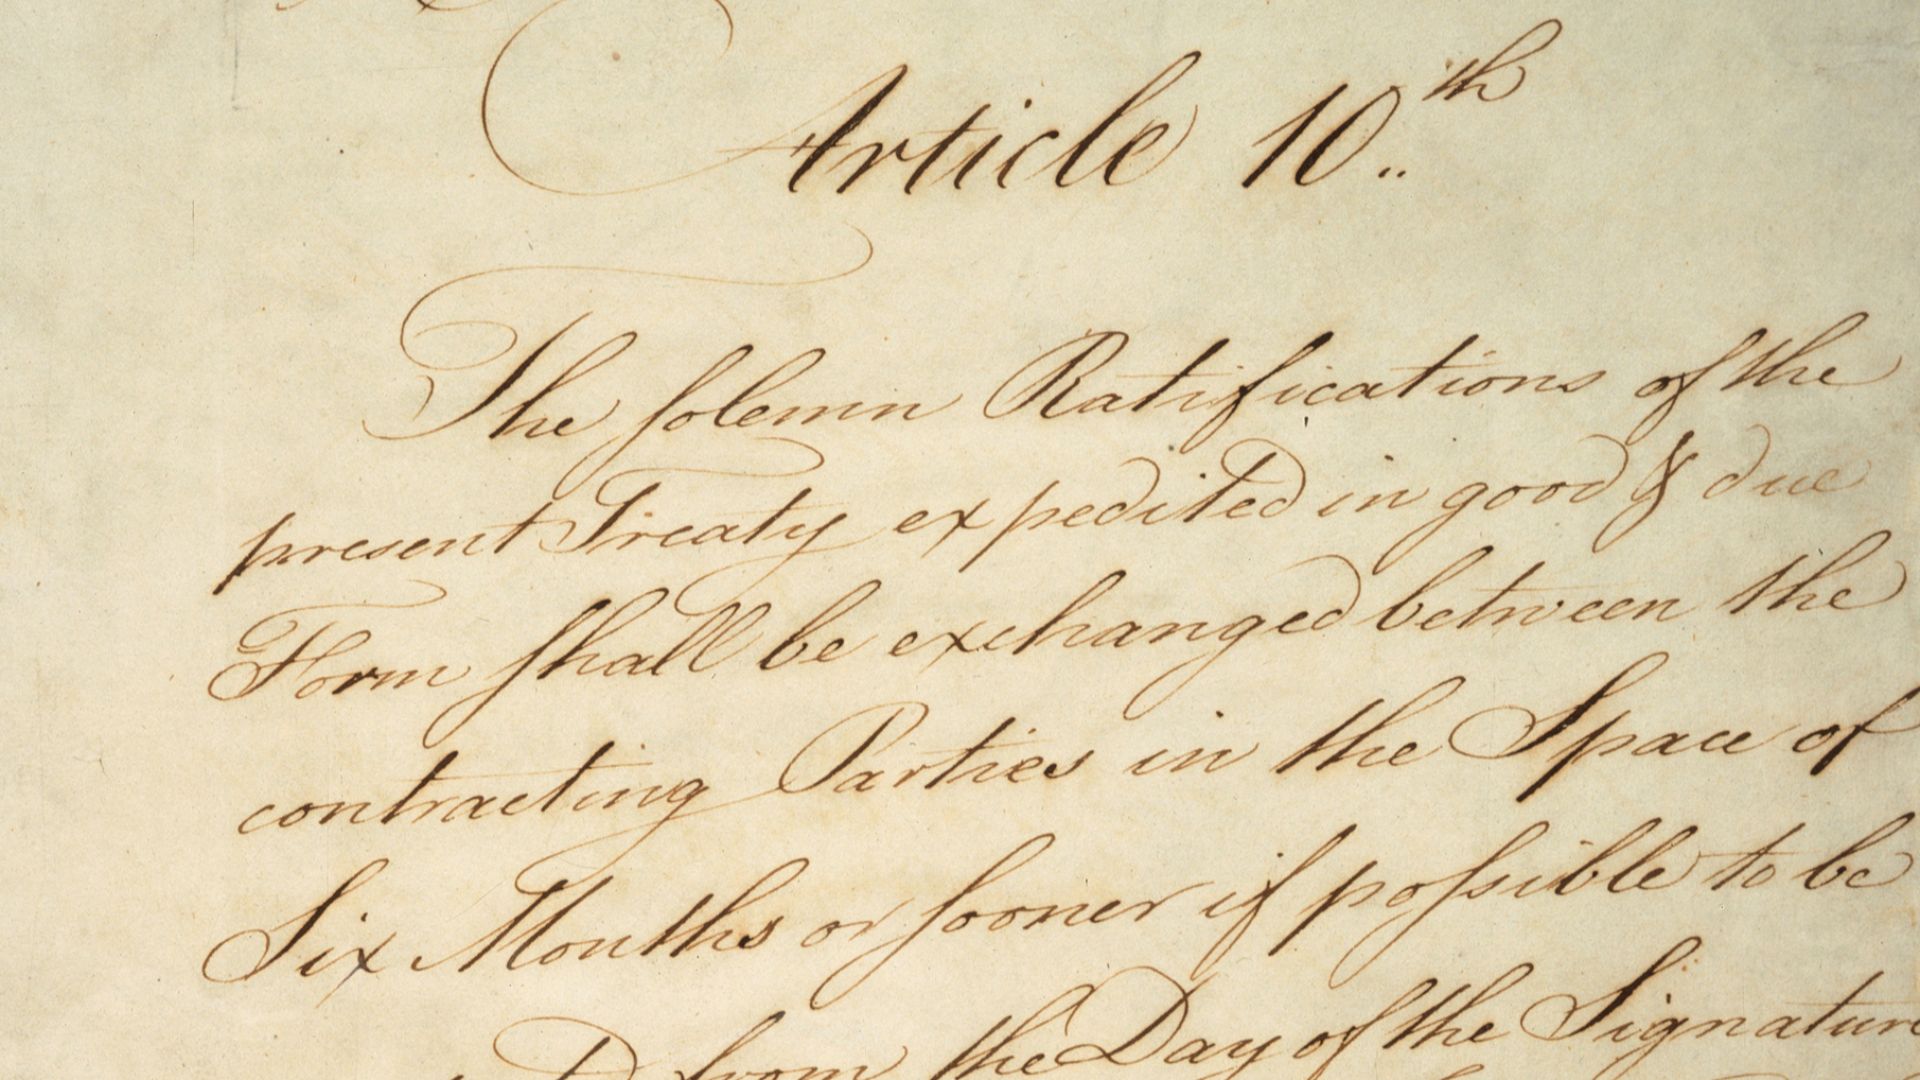 Article 10.th
The solemn Ratifications of the
present Treaty expedited in good & due
Form shall be exchanged between the
contracting Parties in the Space of
Six Months or sooner if possible to be
from the Day of the Signature